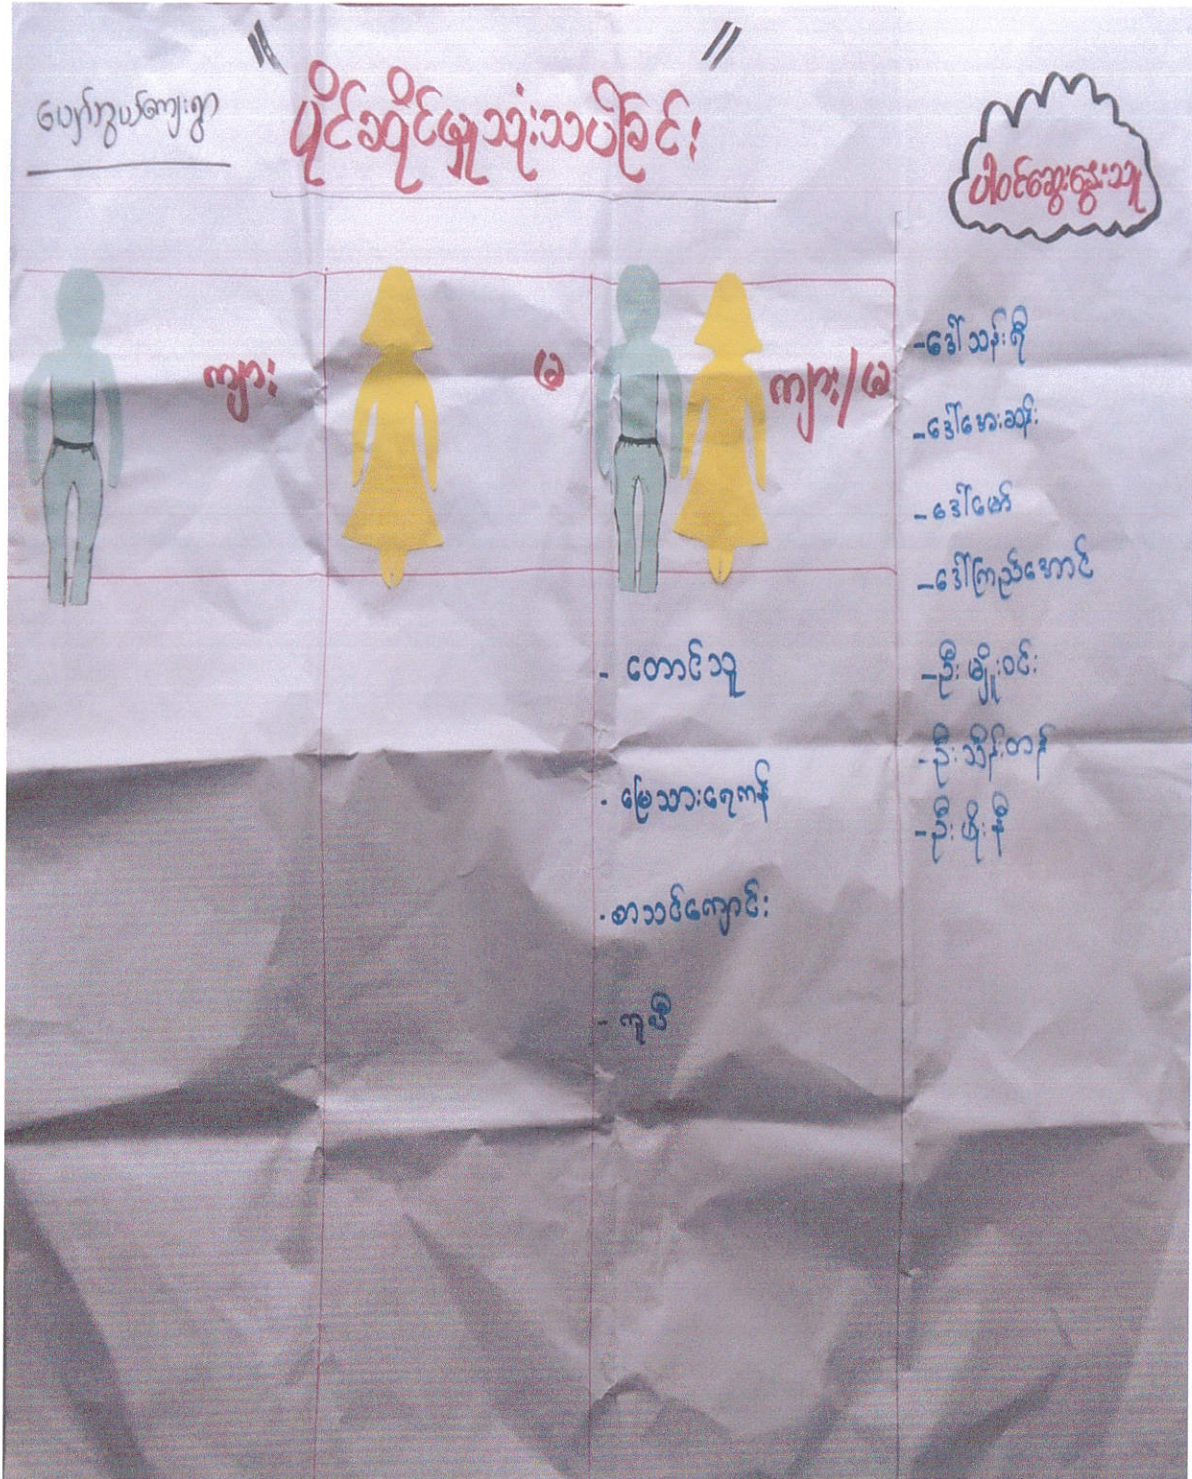 "ပိုင်ဆိုင်မှုသုံးသပ်ခြင်း"
ပါဝင်ဆွေးနွေးသူ
ကျား
မ
ကျား/မ
- တောင်သူ
- မြေသားရေကန်
- စာသင်ကျောင်း
- ကူဗီ
- ဒေါ်သန်းရီ
- ဒေါ်အေးဆန်း
- ဒေါ်မော်
- ဒေါ်ကြည်အောင်
- ဦးမျိုးဝင်း
- ဦးသိန်းတန်
- ဦးဖိုးနီ